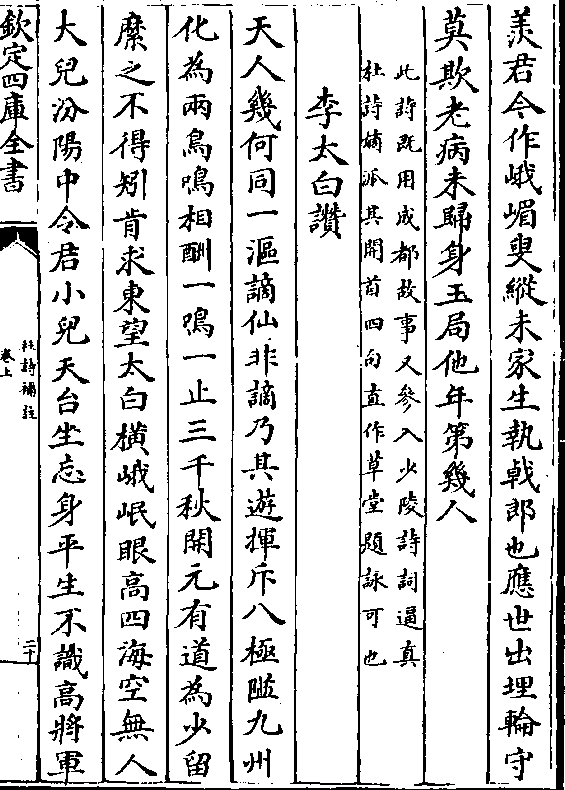 羨君今作峨嵋叟縱未家生執戟郎也應世出埋輪守
莫欺老病未歸身玉局他年第幾人
此詩既用成都故事又參入少陵詩詞逼真
杜詩嫡派其開首四句直作草堂題詠可也
李太白讚
天人幾何同一漚謫仙非謫乃其遊揮斥八極隘九州
化為兩鳥鳴相酬一鳴一止三千秋開元有道為少留
縻之不得矧肯求東望太白橫峨岷眼高四海空無人
大兒汾陽中令君小兒天台坐忘身平生不識高將軍
欽定四庫全書
杜詩補註
卷上
二十